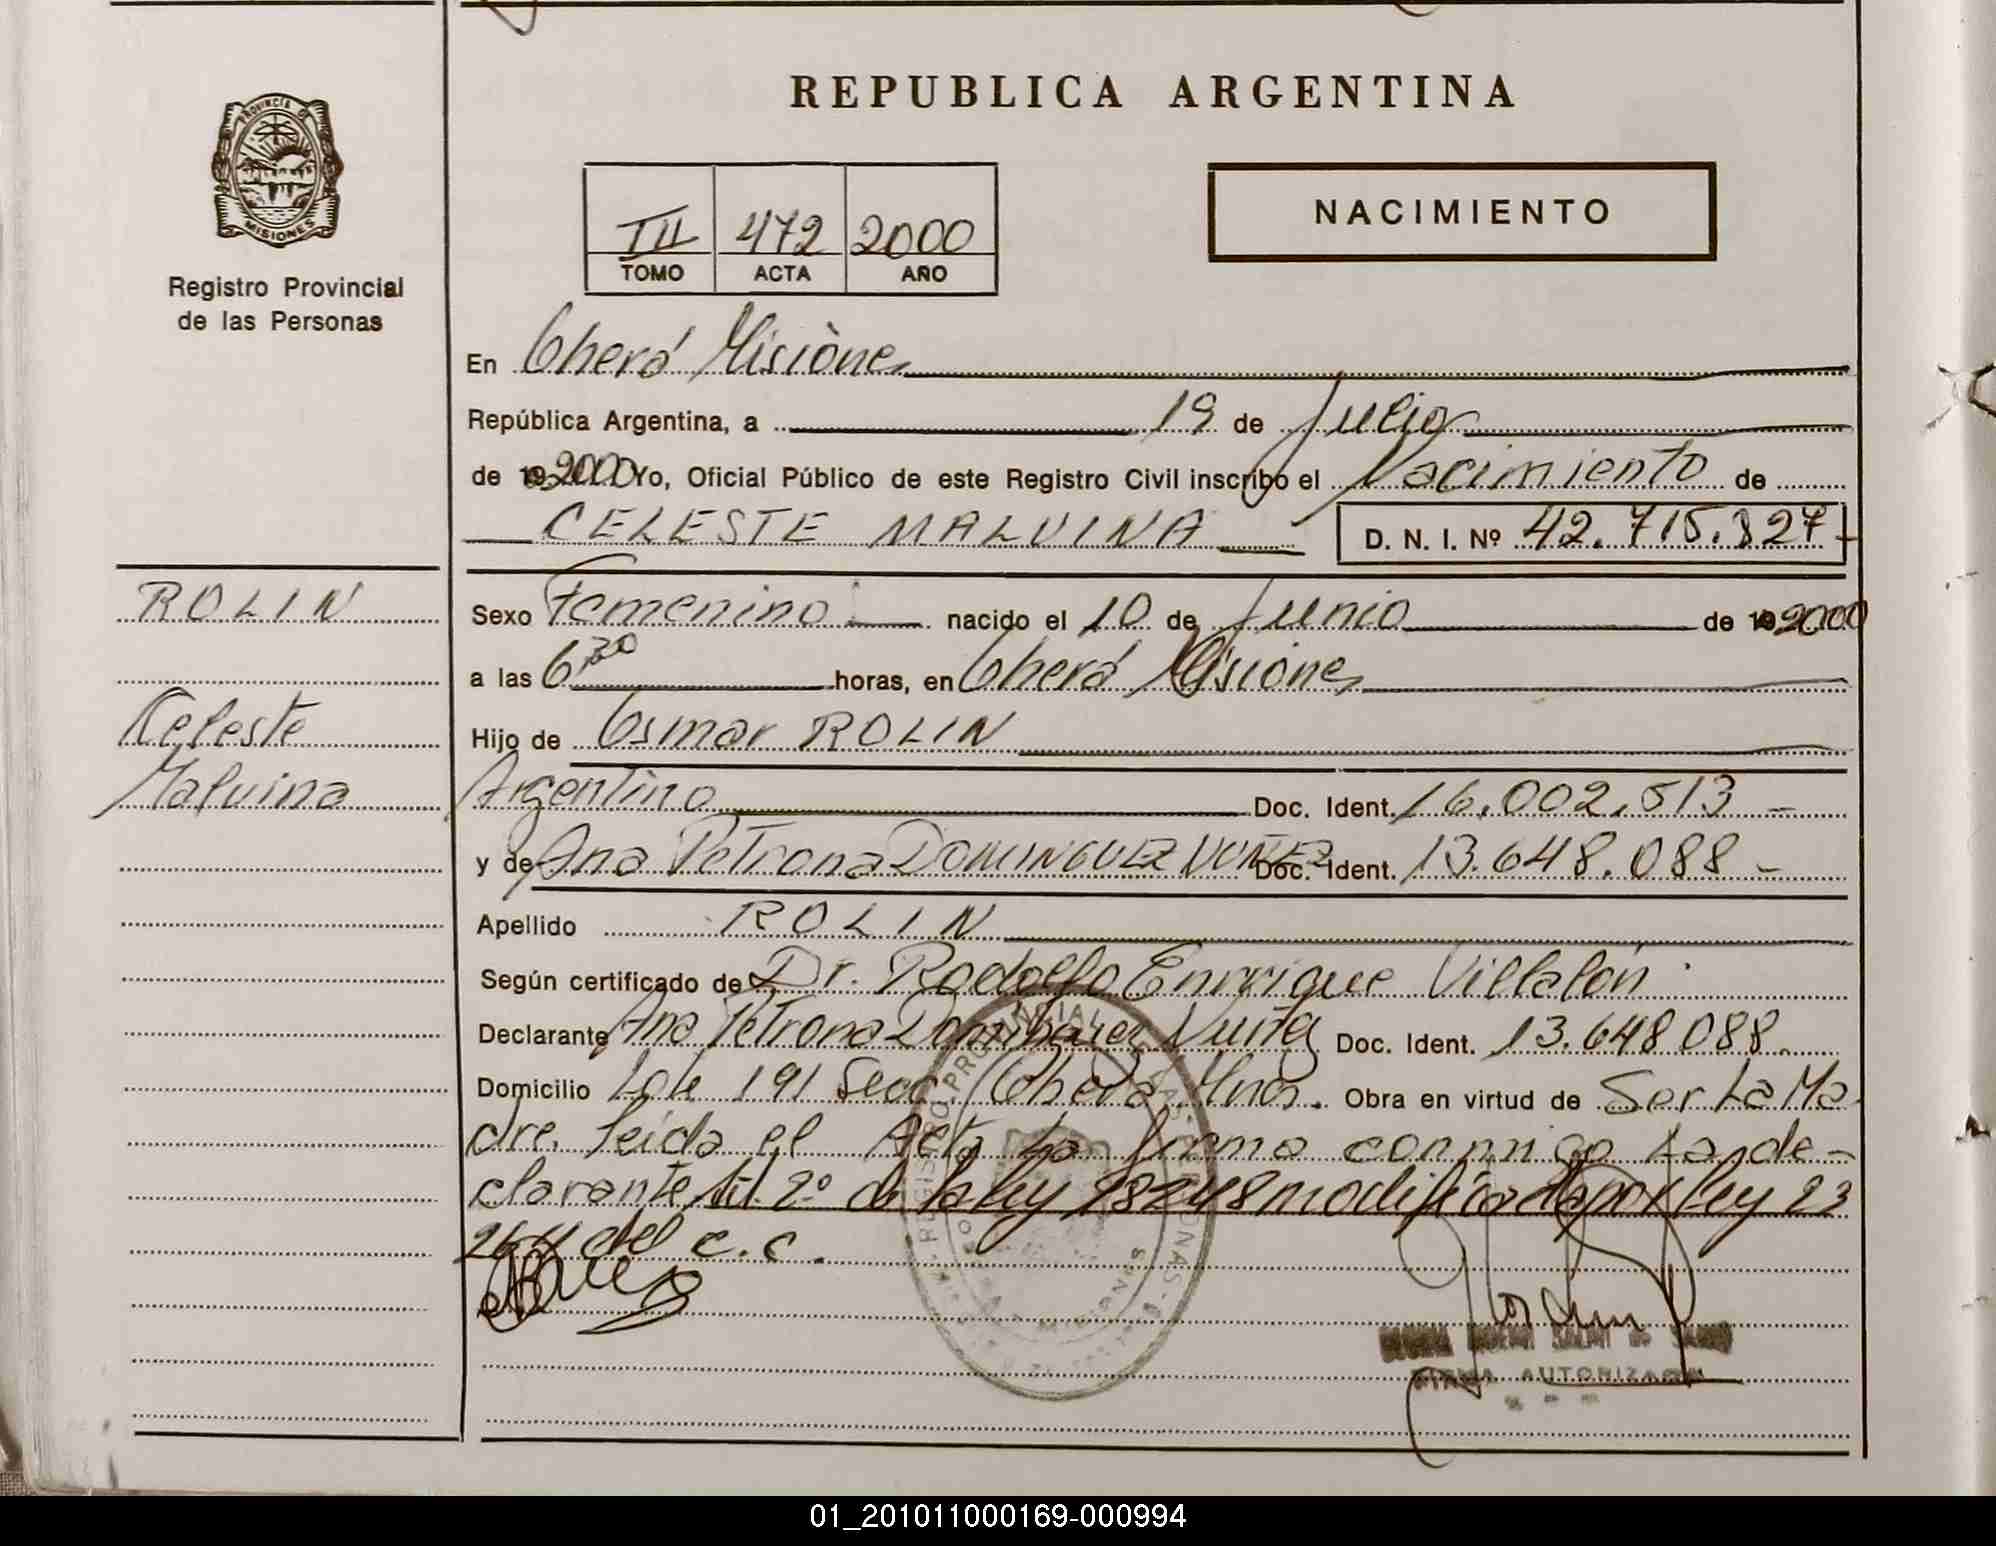 REPUBLICA ARGENTINA
PROVINCIA DE
MISIONES
Registro Provincial
de las Personas
III 472 2000
TOMO ACTA AÑO
NACIMIENTO
En Oberá Misiones
República Argentina, a 19 de Julio
de 19 2000 Yo, Oficial Público de este Registro Civil inscribo el Nacimiento de
CELESTE MALVINA D. N. I. Nº 42.715.327
ROLIN
Celeste
Malvina
Sexo Femenino nacido el 10 de Junio de 19 2000
a las 6:30 horas, en Oberá Misiones
Hijo de Osmar ROLIN
Argentino Doc. Ident. 16.002.513 -
y de Ana Petrona DOMINGUEZ NUÑEZ Doc. Ident. 13.648.088 -
Apellido ROLIN
Según certificado de Dr. Rodolfo Enrrique Villalón
Declarante Ana Petrona Dominguez Nuñez Doc. Ident. 13.648.088
Domicilio Lote 191 Secc. Oberá Mnes. Obra en virtud de Ser La Ma
dre. leída el Acta la firma conmigo La de-
clarante Art. 2º de la ley 18248 modificada por ley 23
264 del c.c.
FIRMA AUTORIZADA
01_201011000169-000994